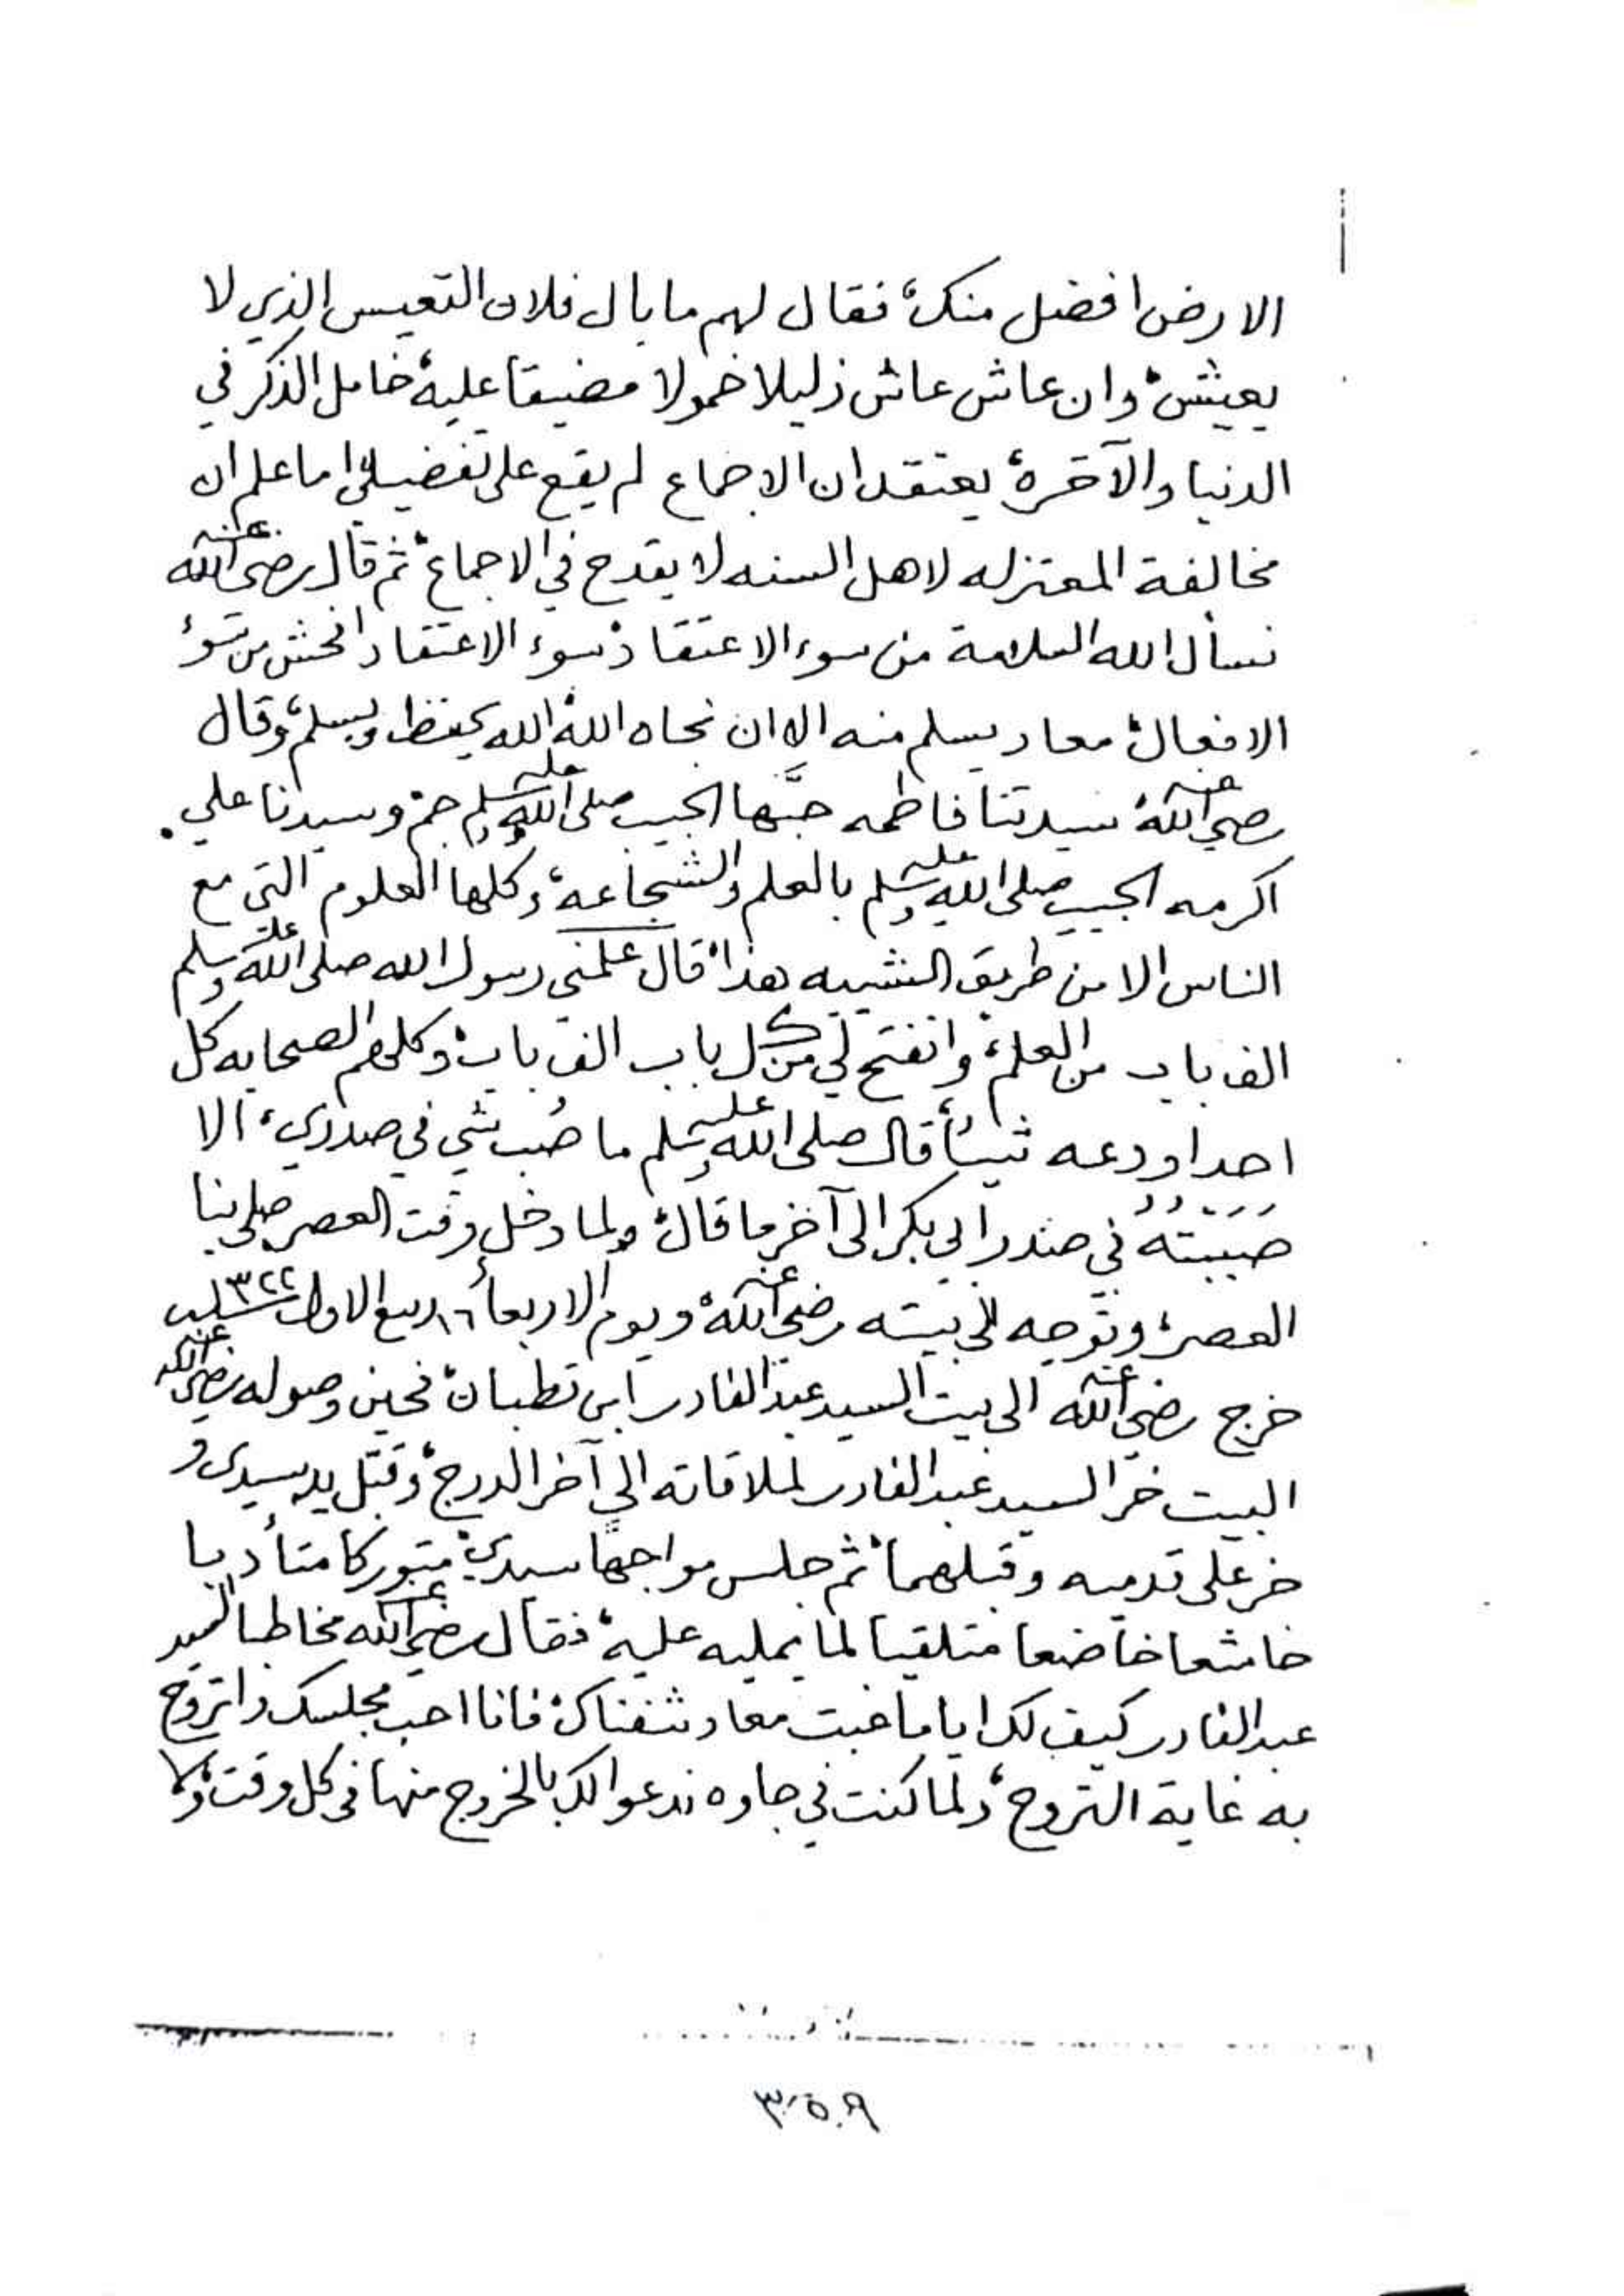 الارض افضل منك، فقال لهم ما بال فلان التعيس الذي لا
يعيش، وان عاش عاش ذليلا خمولا مضيقا عليه، خامل الذكر في
الدنيا والآخرة، يعتقد ان الاجماع لم يقع على تفضيلي اما علم ان
مخالفة المعتزله لاهل السنه لا يقدح في الاجماع، ثم قال رضي الله عنه
نسأل الله السلامة من سوء الاعتقاد، سوء الاعتقاد افحش من سوء
الافعال، معاد يسلم منه الا ان نجاه الله، الله يحفظ ويسلم، وقال
رضي الله عنه سيدتنا فاطمه حبّها الحبيب صلى الله عليه وسلم جم وسيدنا علي
اكرمه الحبيب صلى الله عليه وسلم بالعلم والشجاعة، وكلها العلوم التي مع
الناس الا من طريق الشيبه هذا، قال علمني رسول الله صلى الله عليه وسلم
الف باب من العلم، وانفتح لي من كل باب الف باب، وكلهم الصحابه كل
احد اودعه شيئأ قال صلى الله عليه وسلم ما صُب شي في صدري، الا
صَبَبْتُهُ في صدر ابي بكر الى آخر ما قال، ولما دخل وقت العصر صلى بنا
العصر، وتوجه الى بيته رضي الله عنه، ويوم الاربعأ ١٦ ربيع الاول سنة ٣٢٢
خرج رضي الله عنه الى بيت السيد عبد القادر ابن قطبان، فحين وصوله رضي الله عنه
البيت خر السيد عبد القادر لملاقاته الي آخر الدرج، وقبّل يد سيدي و
خر على قدميه وقبلهما، ثم جلس مواجهًا سيدي، متبوركا متأدبا
خاشعا خاضعا متلقيا لما يمليه عليه، فقال رضي الله عنه مخاطبا السيد
عبد القادر كيف لك اياما غبت معاد شفناك، فانا احب مجلسك واتروح
به غاية التروح، ولما كنت في جاوه ندعوا لك بالخروج منها في كل وقت،